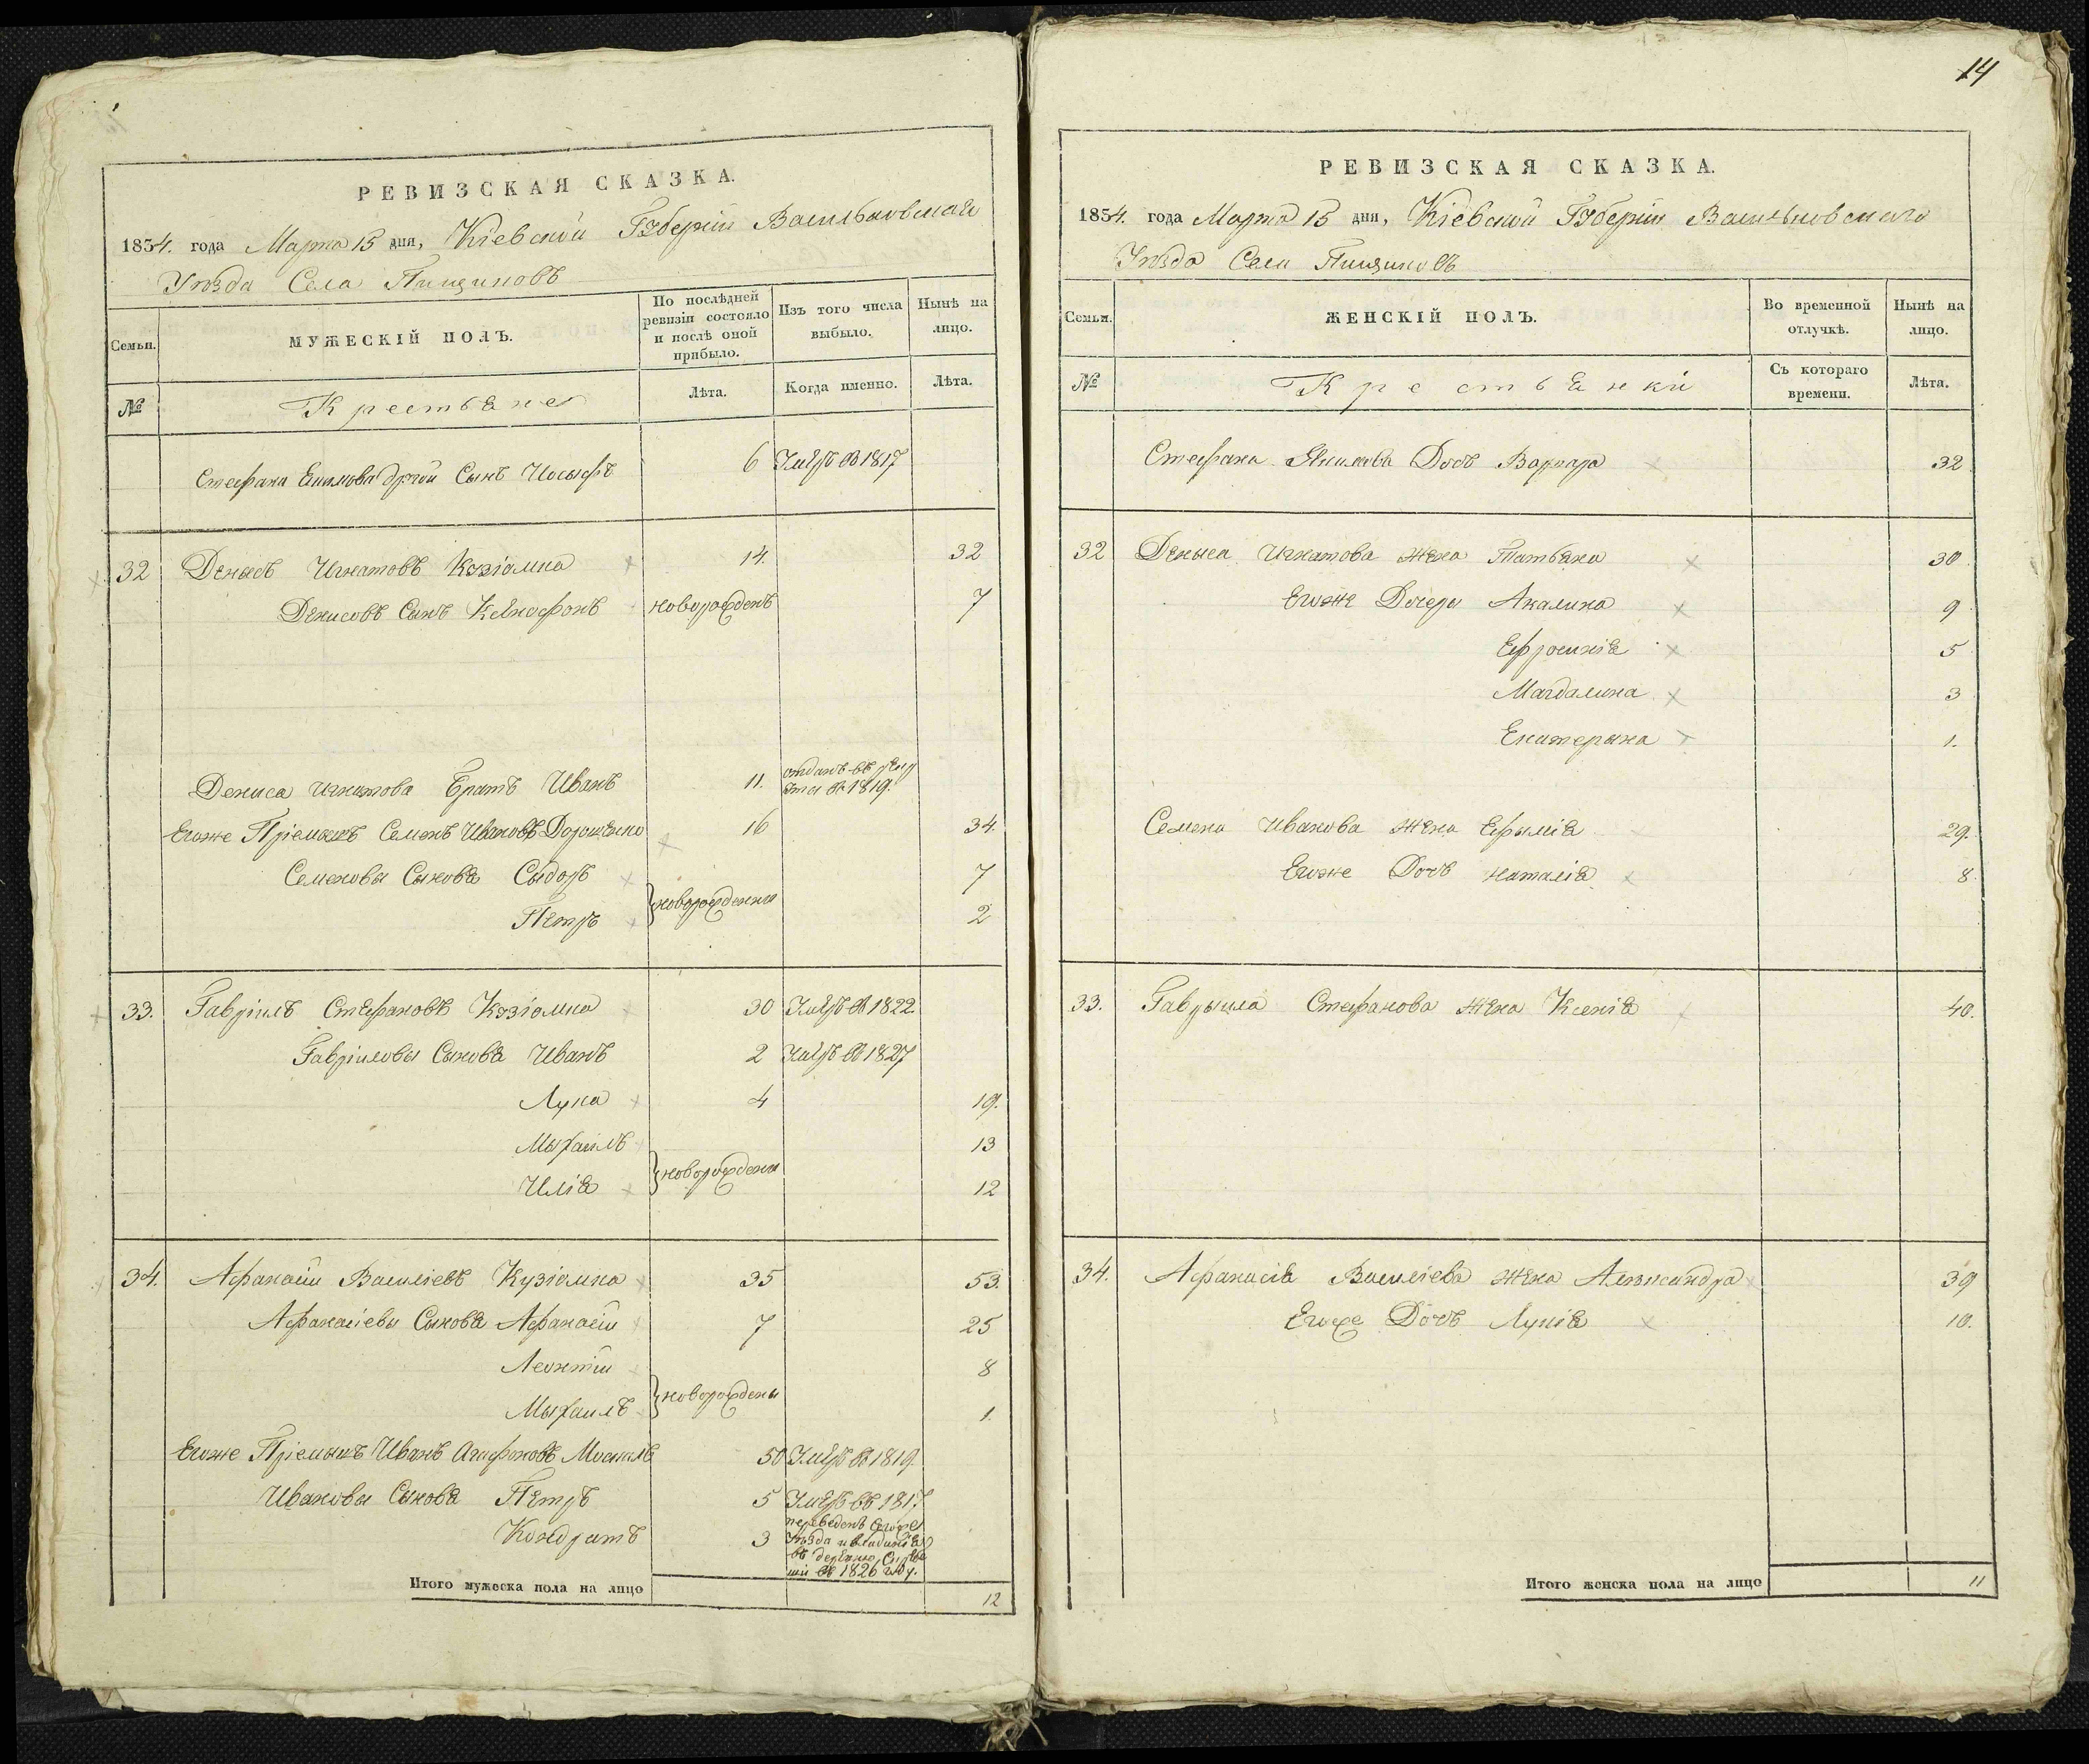 РЕВИЗСКАЯ СКАЗКА.
1834. года Марта 15 дня, Кіевской Губерніи Васильковскаго
Уѣзда Села Пищиковъ
Семьи.
МУЖЕСКІЙ ПОЛЪ.
По послѣдней ревизіи состояло и послѣ оной прибыло.
Изъ того числа выбыло.
Нынѣ на лицо.
№
Крестьяне
Лѣта.
Когда именно.
Лѣта.
Стефана Екимова другой Сынъ Иосыфъ 6 Умеръ въ 1817
32 Денысъ Игнатовъ Кузіомка 14. 32
Денисовъ Сынъ Ксенофонъ новорожденъ 7
Дениса Игнатова Братъ Иванъ 11. отданъ въ рекруты въ 1819.
Егоже Пріемышъ Семенъ Ивановъ Дорошенко 16 34.
Семеновы Сыновя Сыдоръ 7
Петръ } новорожденны 2
33. Гавріилъ Стефановъ Кузіомка 30 Умеръ въ 1822.
Гавріиловы Сыновя Иванъ 2 Умеръ въ 1827
Лука 4 19.
Мыхаилъ 13
Илія } новорождены 12
34. Афанасій Василіевъ Кузіомка 35 53.
Афанасіевы Сыновя Афанасій 7 25
Леонтій 8
Мыхаилъ } новорождены 1.
Егоже Пріемышъ Иванъ Агафоновъ Москаль 50 Умеръ въ 1819.
Ивановы Сыновя Петръ 5 Умеръ въ 1817
Кондратъ 3 переведенъ Сегоже Уѣзда и владинія въ деревню въ 1826 году.
Итого мужеска пола на лицо 12
14
РЕВИЗСКАЯ СКАЗКА.
1834. года Марта 15 дня, Кіевской Губерніи Васильковскаго
Уѣзда Села Пищиковъ
Семьи.
ЖЕНСКІЙ ПОЛЪ.
Во временной отлучкѣ.
Нынѣ на лицо.
№
Крестьянки
Съ котораго времени.
Лѣта.
Стефана Якимова Дочъ Варвара 32
32 Деныса Игнатова жена Татьяна 30
Егоже Дочеры Акилина 9
Ефросинія 5
Магдалина 3
Екатерына 1.
Семена Иванова жена Ефымія 29.
Егоже Дочъ Наталія 8
33. Гаврыила Стефанова жена Ксенія 40.
34. Афанасія Василіева жена Александра 39
Егоже Дочъ Лукія 10.
Итого женска пола на лицо 11